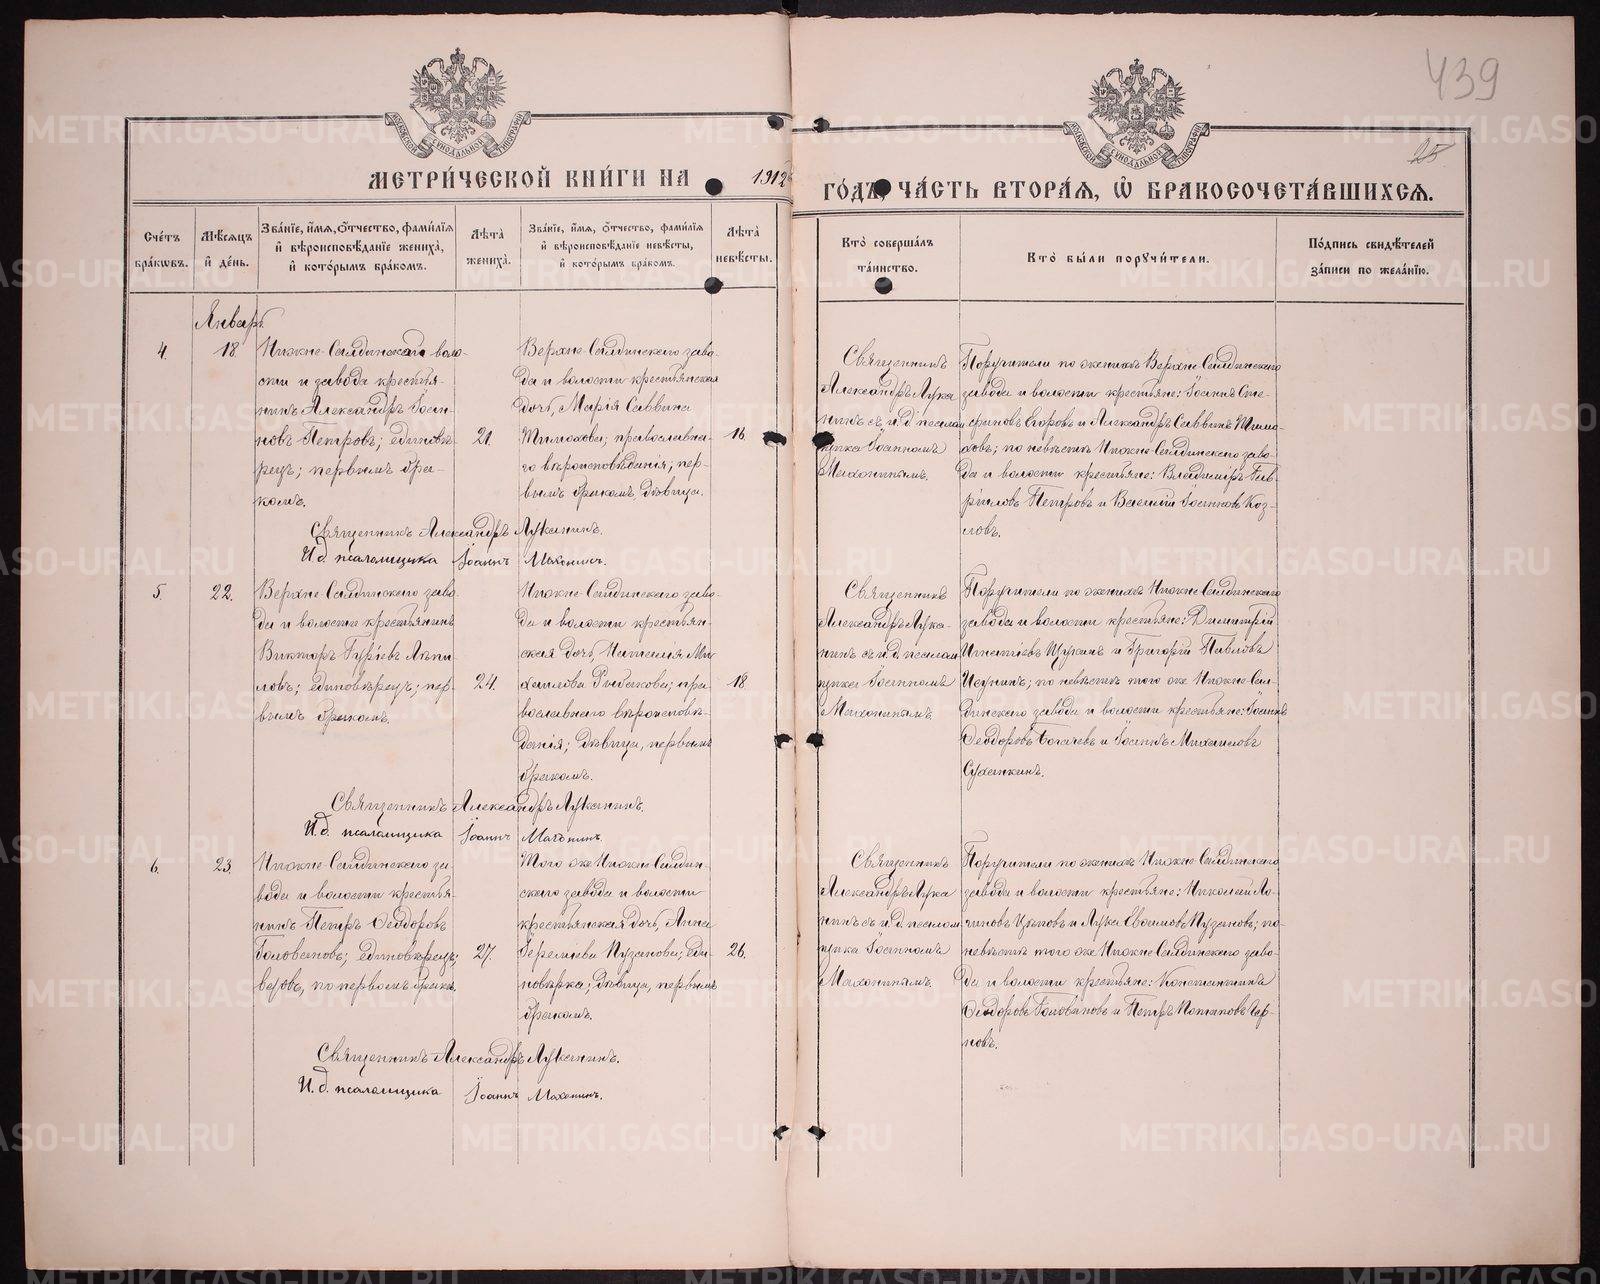 439
25
МЕТРИЧЕСКОЙ КНИГИ НА 1912
ГОДЪ, ЧАСТЬ ВТОРАЯ, Ѡ БРАКОСОЧЕТАВШИХСЯ.
Счетъ браковъ.
Мѣсяцъ и день.
Званіе, имя, отчество, фамилія и вѣроисповѣданіе жениха, и которымъ бракомъ.
Лѣта жениха.
Званіе, имя, отчество, фамилія и вѣроисповѣданіе невѣсты, и которымъ бракомъ.
Лѣта невѣсты.
Кто совершалъ таинство.
Кто были поручители.
Подпись свидѣтелей записи по желанію.
Январь
4.
18.
Нижне-Салдинскаго воло-
сти и завода крестья-
нинъ Александръ Іоан-
новъ Петровъ; единовѣ-
рецъ; первымъ бра-
комъ.
21.
Верхне-Салдинскаго заво-
да и волости крестьянская
дочь, Марія Саввина
православна-
го вѣроисповѣданія; пер-
вымъ бракомъ, дѣвица.
16.
Священникъ
Александръ Лука-
нинъ съ и.д. псалом-
щика Іоанномъ
Махонинымъ.
Поручители по женихѣ Верхне-Салдинскаго
завода и волости крестьяне: Іоаннъ Сте-
Егоровъ и Александръ Саввинъ
по невѣстѣ Нижне-Салдинскаго заво-
да и волости крестьяне: Владиміръ Гав-
риловъ Петровъ и Василій Іоанновъ Коз-
ловъ.
Священникъ Александръ Луканинъ.
И.д. псаломщика Іоаннъ Махонинъ.
5.
22.
Верхне-Салдинскаго заво-
да и волости крестьянинъ
Викторъ Гурьевъ
единовѣрецъ; пер-
вымъ бракомъ.
24.
Нижне-Салдинскаго заво-
да и волости крестьян-
ская дочь, Наталія Ми-
хаилова Рыбакова; пра-
вославнаго вѣроисповѣ-
данія; дѣвица, первымъ
бракомъ.
18.
Священникъ
Александръ Лука-
нинъ съ и.д. псалом-
щика Іоанномъ
Махонинымъ.
Поручители по женихѣ Нижне-Салдинскаго
завода и волости крестьяне: Димитрій
Игнатіевъ и Григорій Павловъ
по невѣстѣ того же Нижне-Сал-
динскаго завода и волости крестьяне: Іоаннъ
Ѳеодоровъ и Іоаннъ Михаиловъ
Суханкинъ.
Священникъ Александръ Луканинъ.
И.д. псаломщика Іоаннъ Махонинъ.
6.
23.
Нижне-Салдинскаго за-
вода и волости крестья-
нинъ Петръ Ѳеодоровъ
Головановъ; единовѣрецъ;
по первомъ бракѣ.
27.
Того же Нижне-Салдин-
скаго завода и волости
крестьянская дочь, Анна
Іереміева Пузанова; еди-
новѣрка; дѣвица, первымъ
бракомъ.
26.
Священникъ
Александръ Лука-
нинъ съ и.д. псалом-
щика Іоанномъ
Махонинымъ.
Поручители по женихѣ Нижне-Салдинскаго
завода и волости крестьяне: Николай Ло-
и Лука Пузановъ; по
невѣстѣ того же Нижне-Салдинскаго заво-
да и волости крестьяне: Константинъ
Ѳеодоровъ Головановъ и Петръ Потаповъ
новъ.
Священникъ Александръ Луканинъ.
И.д. псаломщика Іоаннъ Махонинъ.
METRIKI.GASO-URAL.RU